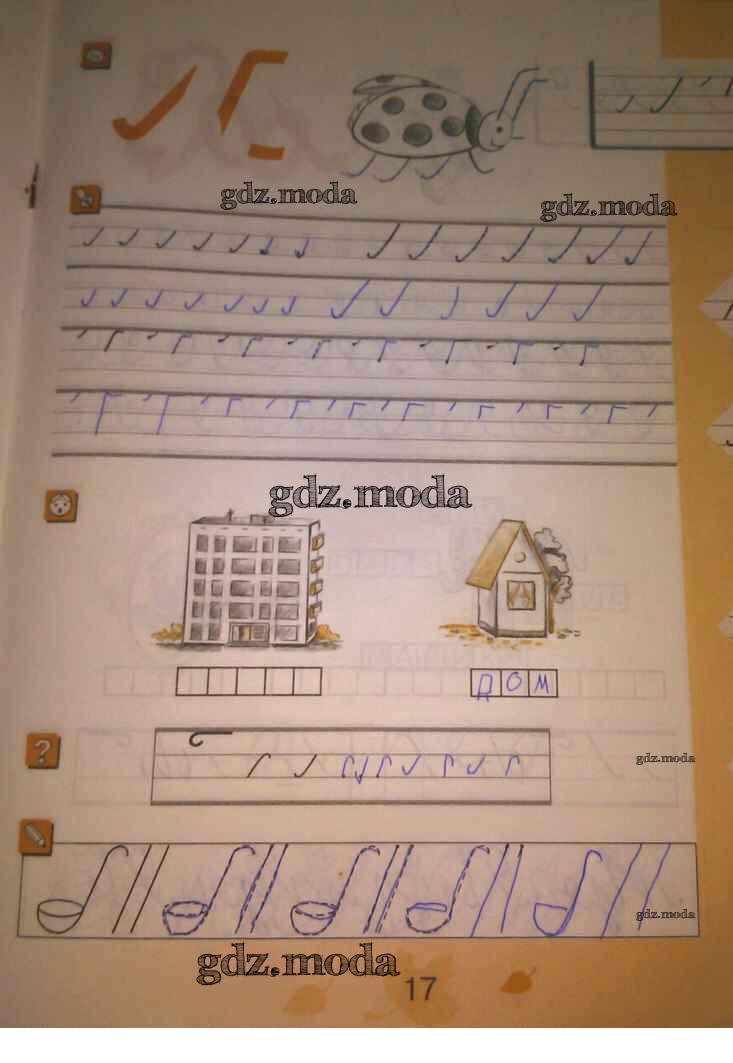 gdz.moda
gdz.moda
gdz.moda
дом
?
gdz.moda
gdz.moda
gdz.moda
17